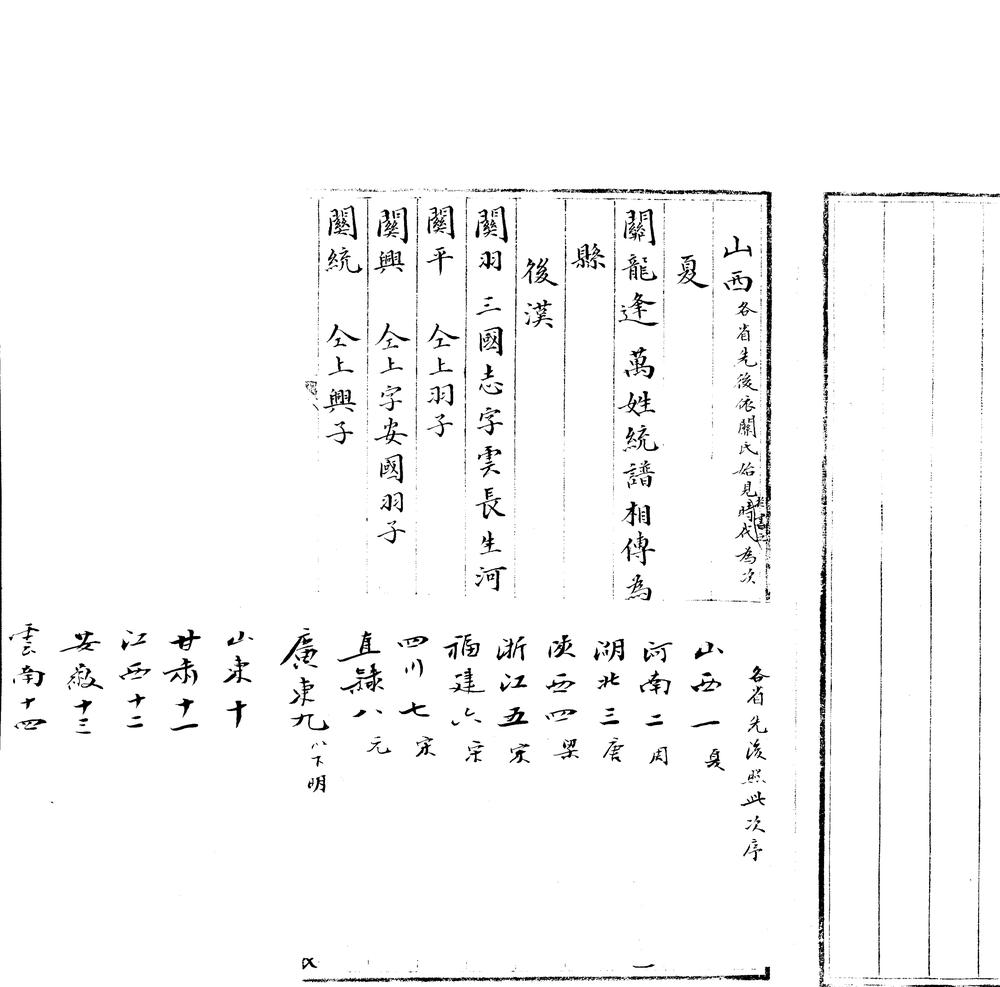 山西各省先後依關氏始見時代為次
夏
關龍逢 萬姓統譜相傳為
縣
後漢
關羽 三國志字雲長生河
關平 仝上羽子
關興 仝上字安國羽子
關統 仝上興子
各省先後照此次序
山西一夏
河南二周
湖北三唐
陝西四梁
浙江五宋
福建六宋
四川七宋
直隸八元
廣東九八下明
山東十
甘肅十一
江西十二
安徽十三
雲南十四
一